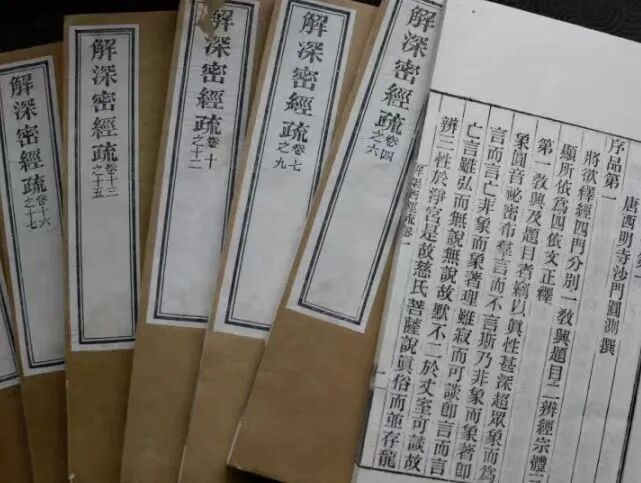 唐西明寺沙門圓測撰
序品第一
將欲釋經四門分別一教興題目二辨經宗體三
顯所依為四依文正釋
第一教興及題目者竊以眞性甚深超眾象而為
象圓音祕密布羣言而不言斯乃非象而象著即
言而言亡非象而象著理雖寂而可談即言而言
亡言雖弘而無說無說故默不二於丈室可談故
辨三性於淨宮是故慈氏菩薩說眞俗而並存龍
解深密經疏卷一
解深密經疏卷四之六
解深密經疏卷七之九
解深密經疏卷十之十二
解深密經疏卷十三之十五
解深密經疏卷十六之十七